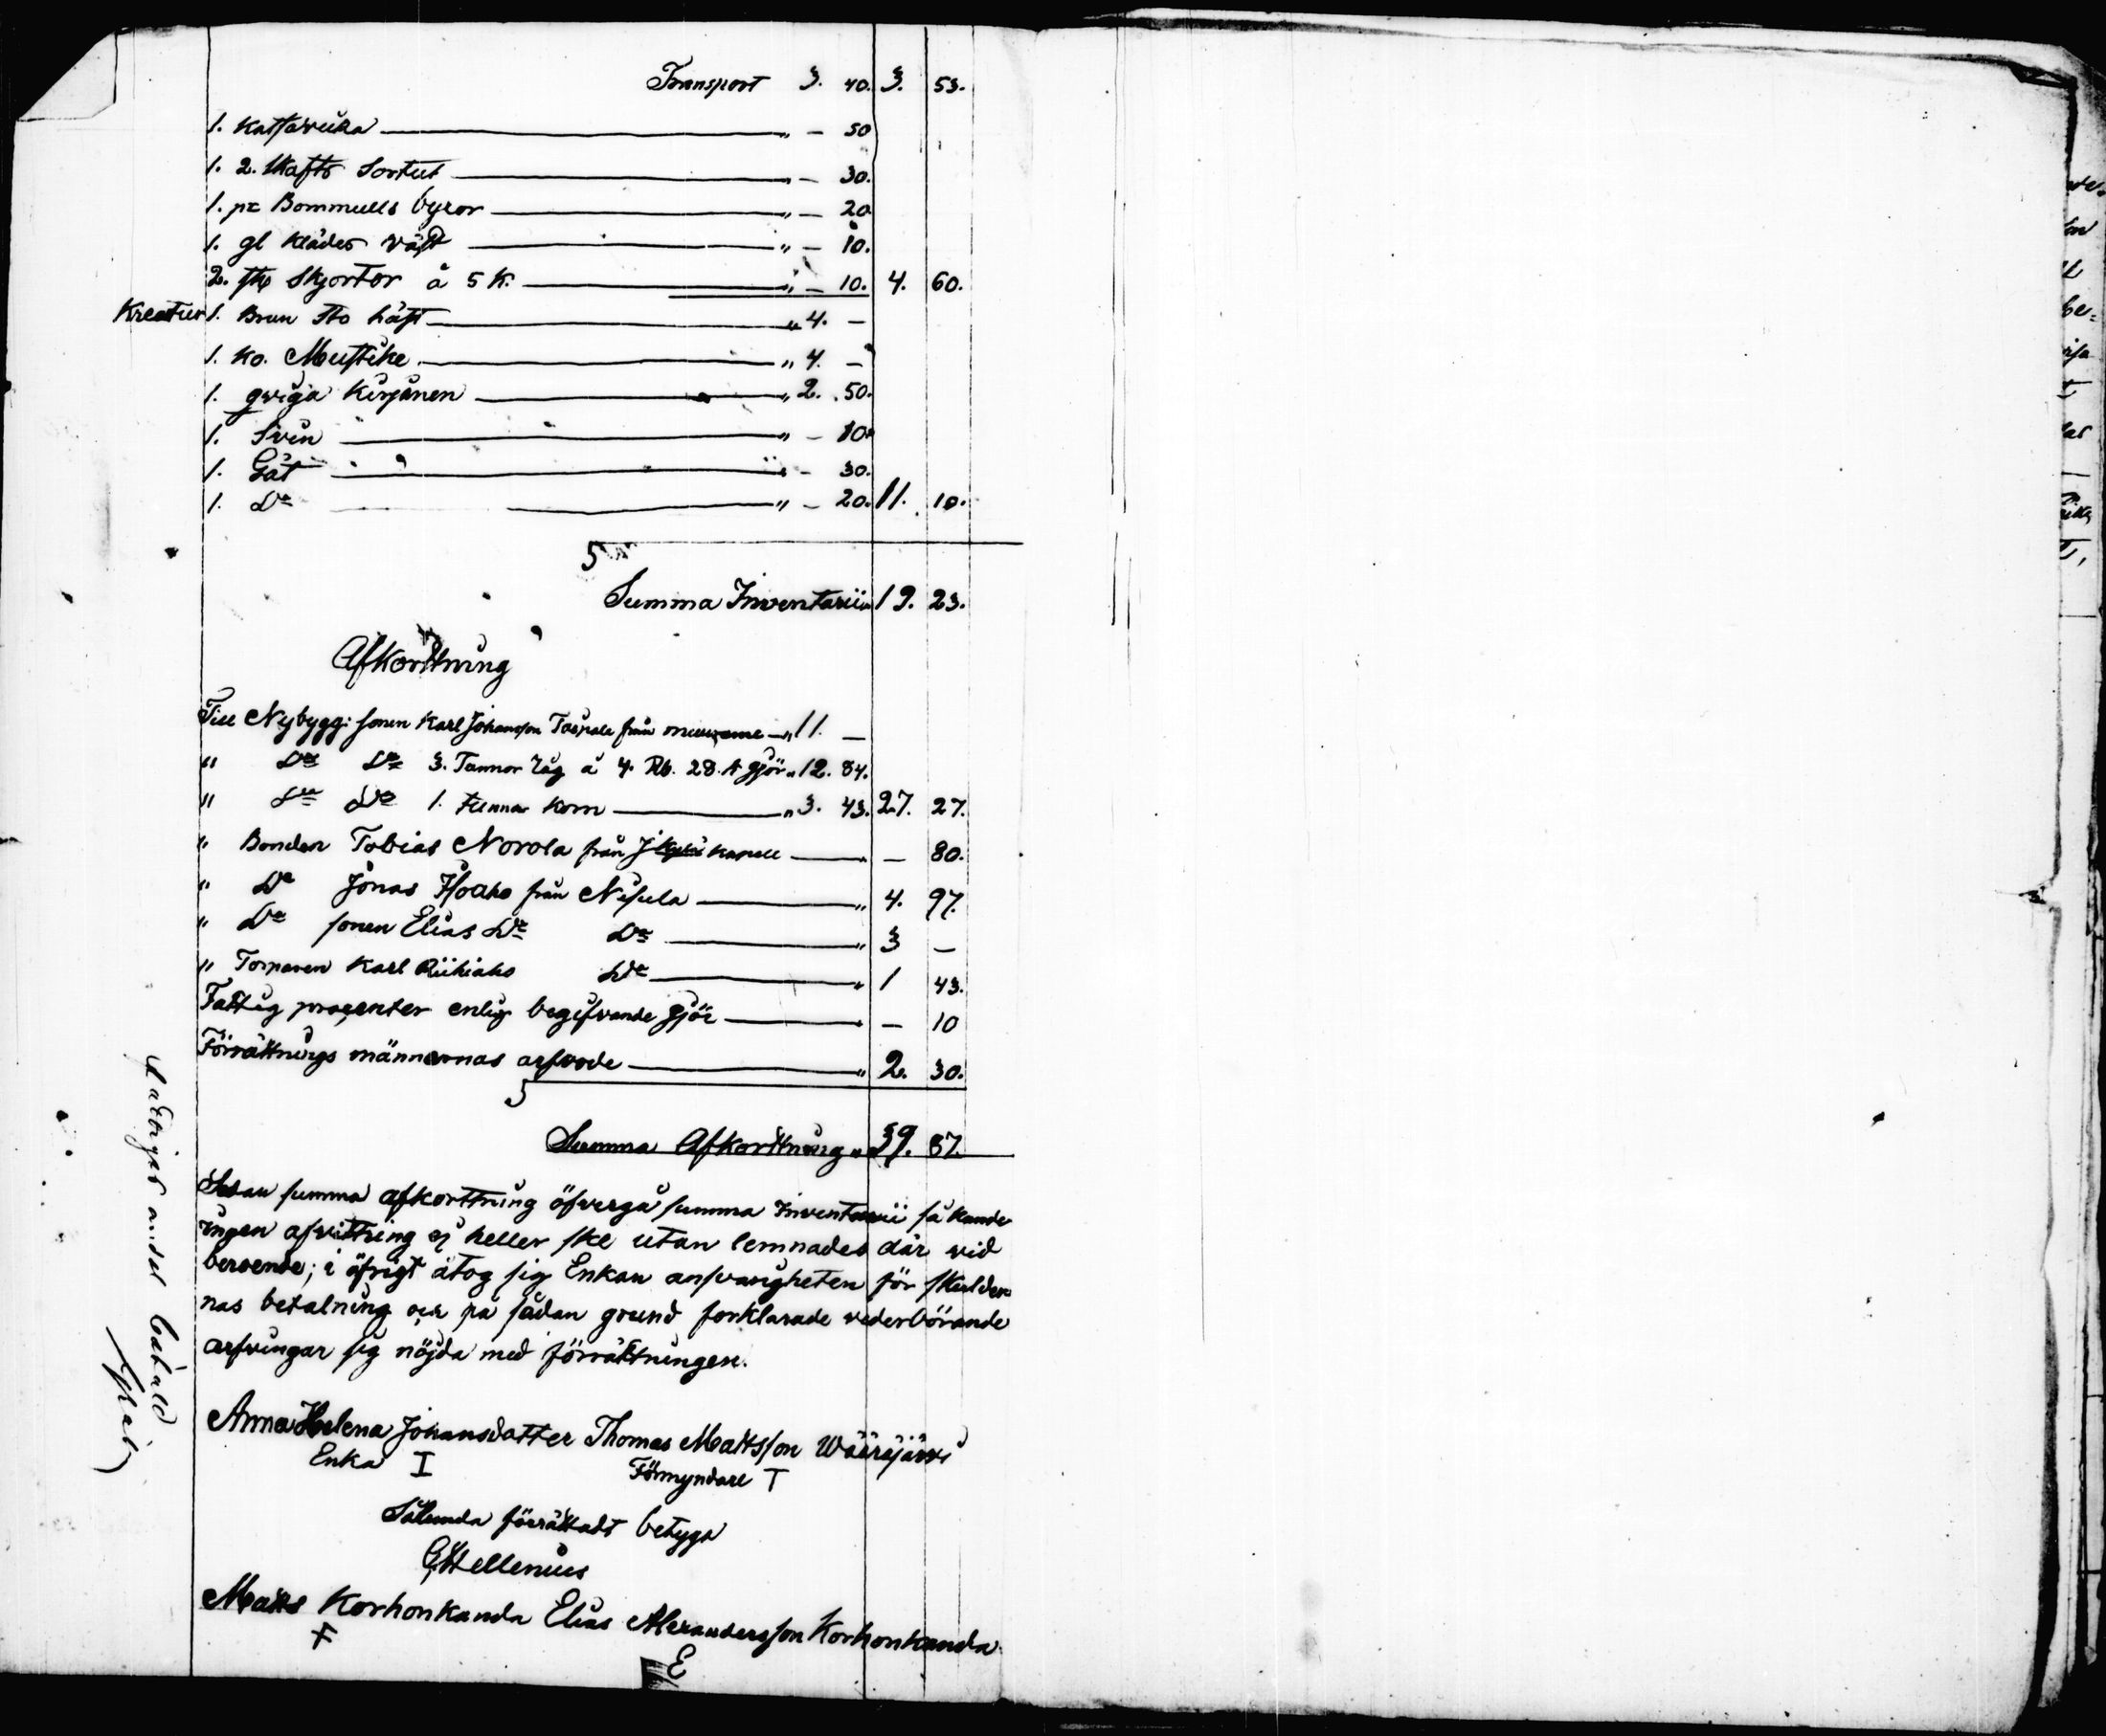 Transport 3. 40. 3. 53.
1. Kattaruka " — 50
1. 2. Skafts Sortut " — 30.
1. pr Bommulls byxor " — 20
1. gl Klädes väst " — 10.
2. st. Skjortor à 5 K. " — 10. 4. 60.
Kreatur 1. Brun Sto häst " 4. —
1. Ko. Mustike " 4. —
1. qviga Kirjanen " 2. 50.
1. Svin " — 10.
1. Gät " — 30.
1. Do " — 20. 11. 10.
Summa Inventarii 19. 23.
Afkorttning
Till Nybygg: sonen Karl Johansson från " 11. —
" Do Do 3. Tunnor Råg à 4. Rb. 28. k gjör " 12. 84.
" Do Do 1. tunna Korn " 3. 43. 27. 27.
" Bonden Tobias Norola från kapell " — 80.
" Do Jonas Isoaho från Nisula " 4. 97.
" Do sonen Elias Do Do " 3 —
" Torparen Karl Riihiaho Do " 1 43.
Fattig procenter enligt begifvande gjör " — 10
Förrättnings männernas arfvode " 2. 30.
Summa Afkorttning " 39. 87.
Sedan summa afkorttning öfvergå summa Inventarii så kunde
ingen afvittring ej heller ske utan lemnades där vid
beroende; i öfrigt åtog sig Enkan ansvarigheten för skulder-
nas betalning och på sådan grund förklarade vederbörande
arfvingar sig nöjda med förrättningen.
Anna Helena Johansdotter Thomas Mattsson Wääräjärvi
Enka I Förmyndare T
Sålunda förrättadt betyga
G. Hellenius
Matts Korhonkanda Elias Alexandersson Korhonkanda
E
Fattigas andel betald